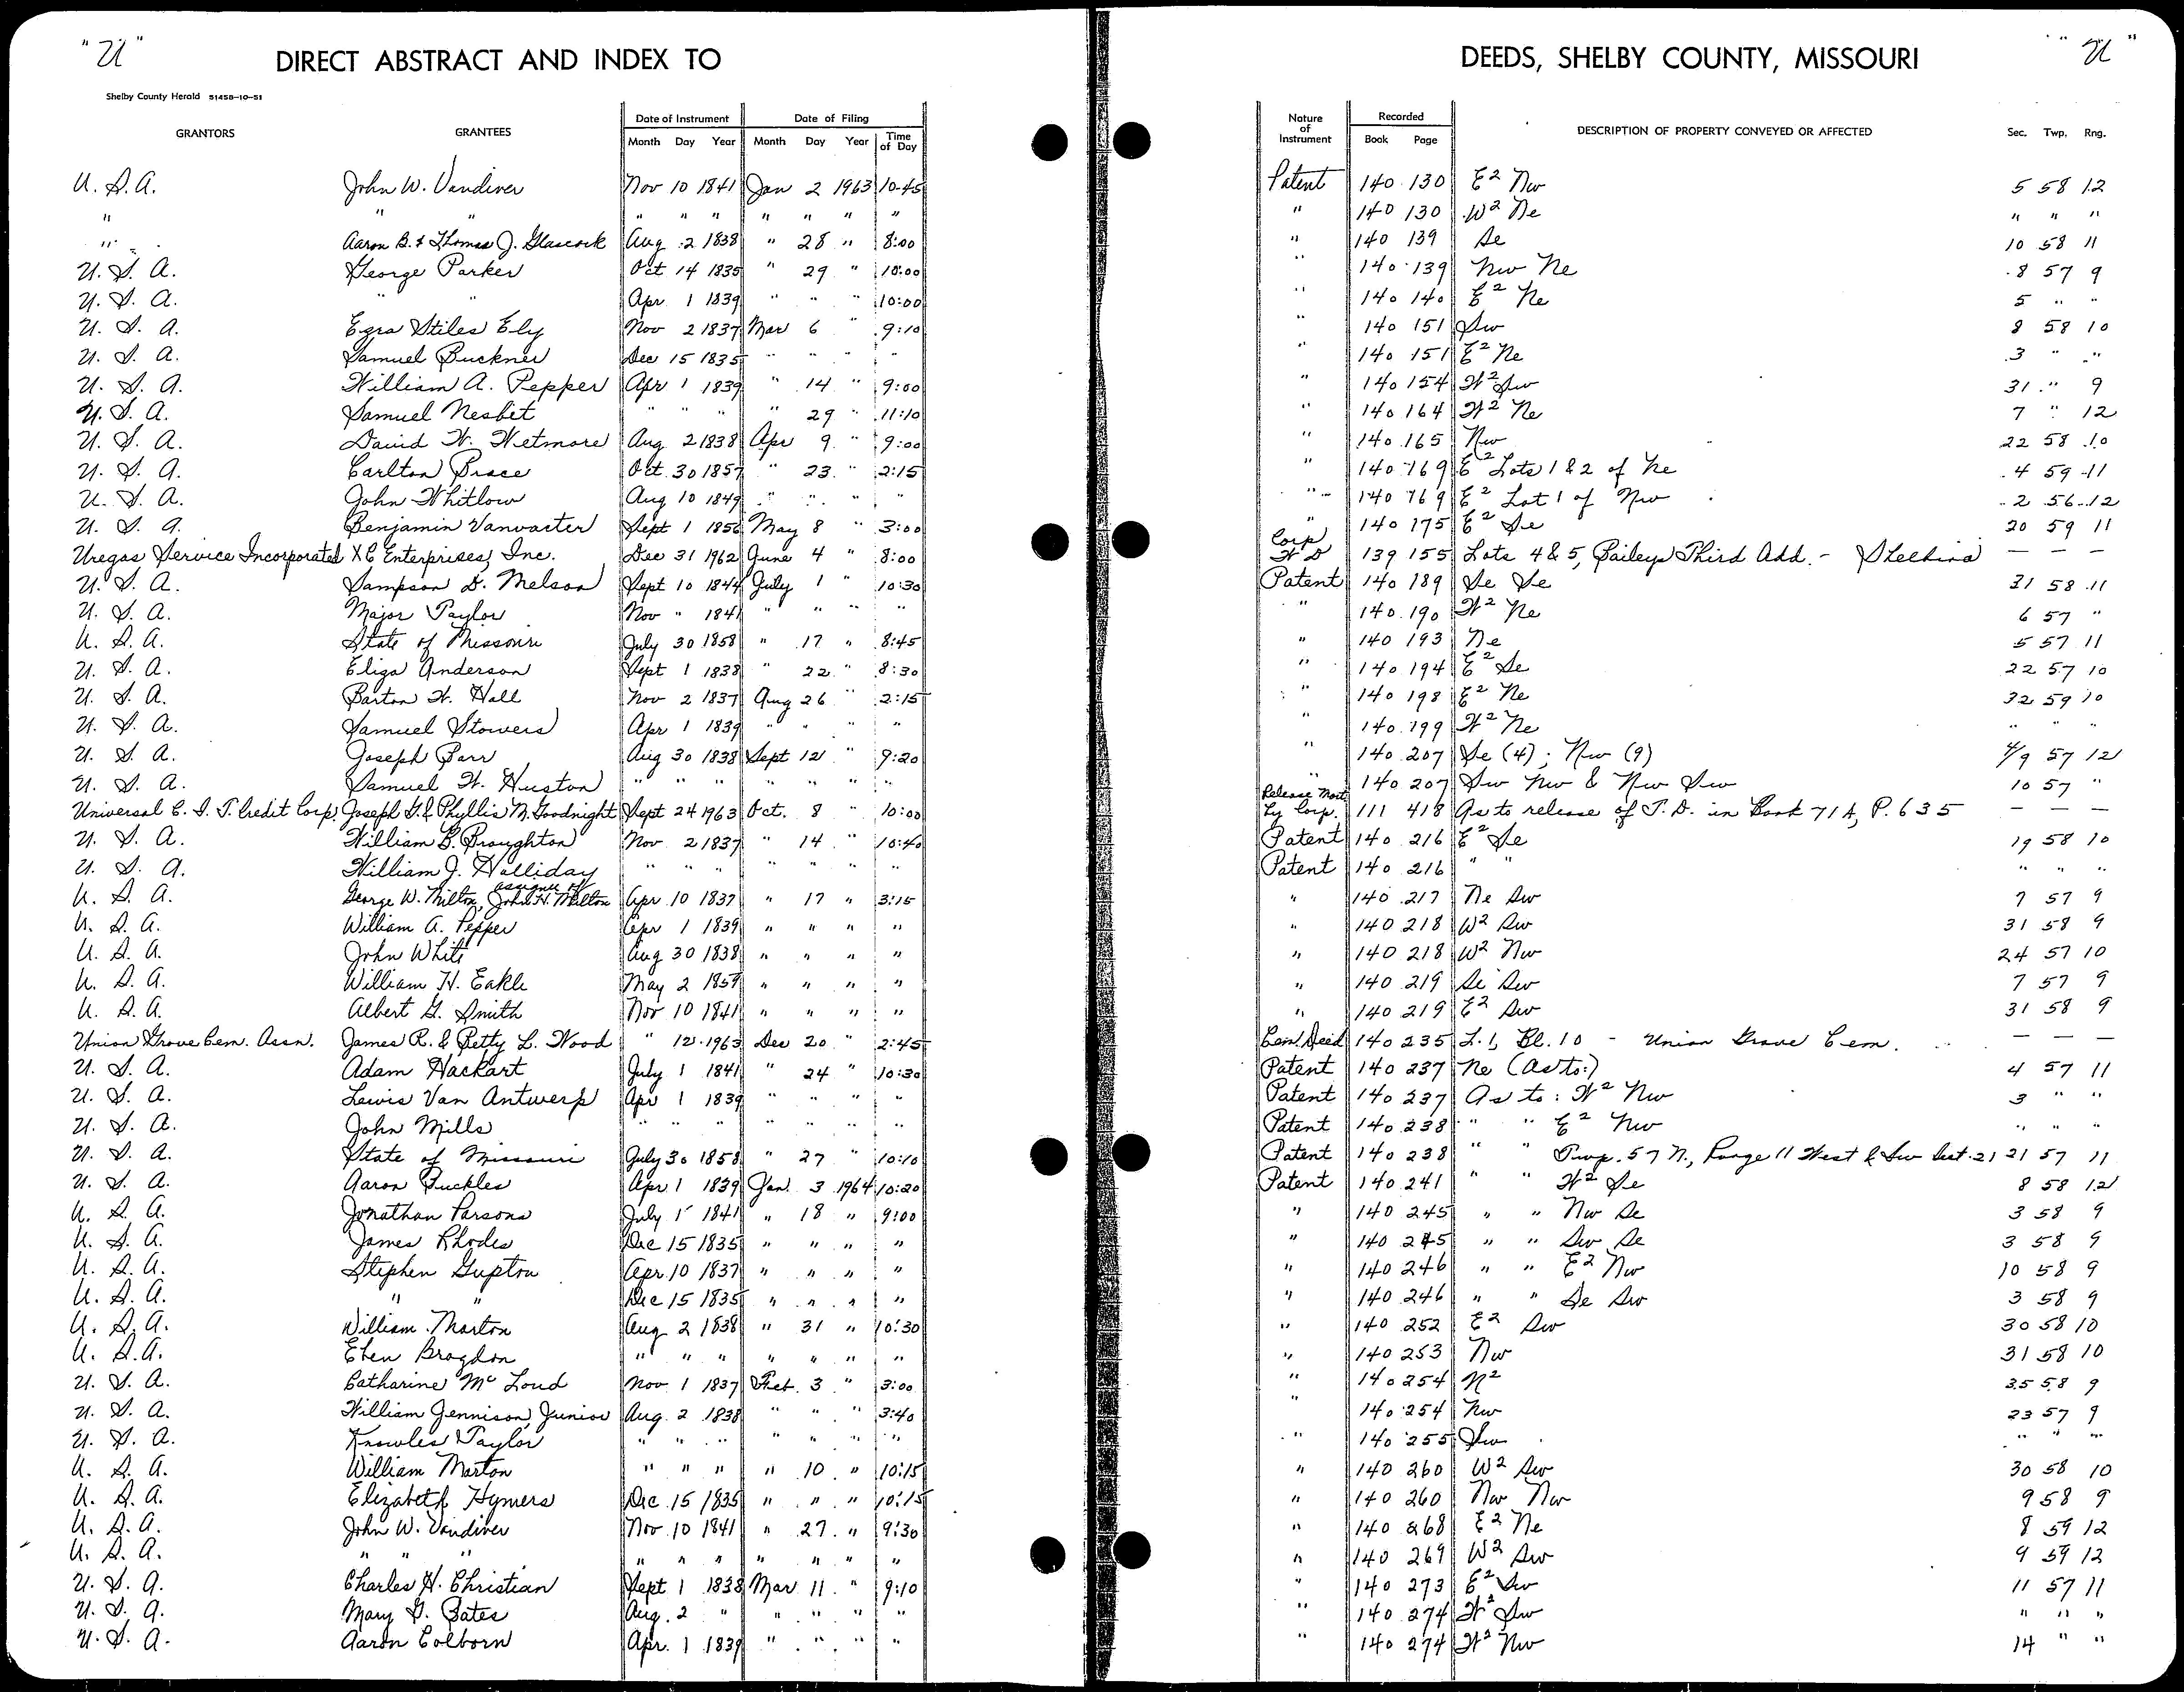 "U" DIRECT ABSTRACT AND INDEX TO DEEDS, SHELBY COUNTY, MISSOURI "U"
Shelby County Herald 51458-10-51
GRANTORS GRANTEES Date of Instrument Month Day Year Date of Filing Month Day Year Time of Day Nature of Instrument Recorded Book Page DESCRIPTION OF PROPERTY CONVEYED OR AFFECTED Sec. Twp. Rng.
U. S. A. John W. Vandiver Nov 10 1841 Jan 2 1963 10-45 Patent 140 130 E2 Nw 5 58 12
" " " " " " " " " " " 140 130 W2 Ne " " "
" Aaron B. & Thomas J. Glascock Aug 2 1838 " 28 " 8:00 " 140 139 Se 10 58 11
U. S. A. George Parker Oct 14 1835 " 29 " 10:00 " 140 139 Nw Ne 8 57 9
U. S. A. " " Apr 1 1839 " " " 10:00 " 140 140 E2 Ne 5 " "
U. S. A. Ezra Stiles Ely Nov 2 1837 Mar 6 " 9:10 " 140 151 Sw 8 58 10
U. S. A. Samuel Buckner Dec 15 1835 " " " " " 140 151 E2 Ne 3 " "
U. S. A. William A. Pepper Apr 1 1839 " 14 " 9:00 " 140 154 W2 Sw 31 " 9
U. S. A. Samuel Nesbit " " " " 29 " 11:10 " 140 164 W2 Ne 7 " 12
U. S. A. David W. Wetmore Aug 2 1838 Apr 9 " 9:00 " 140 165 Nw 22 58 10
U. S. A. Carlton Brace Oct 30 1857 " 23 " 2:15 " 140 169 E2 Lots 1 & 2 of Ne 4 59 11
U. S. A. John Whitlow Aug 10 1849 " " " " " 140 169 E2 Lot 1 of Nw 2 56 12
U. S. A. Benjamin Vanvacter Sept 1 1856 May 8 " 3:00 " 140 175 E2 Se 20 59 11
Uregas Service Incorporated XC Enterprises, Inc. Dec 31 1962 June 4 " 8:00 Corp W D 139 155 Lots 4 & 5, Baileys Third Add. - Shelbina — — —
U. S. A. Sampson D. Melson Sept 10 1844 July 1 " 10:30 Patent 140 189 Se Se 31 58 11
U. S. A. Major Taylor Nov " 1841 " " " " " 140 190 W2 Ne 6 57 "
U. S. A. State of Missouri July 30 1858 " 17 " 8:45 " 140 193 Ne 5 57 11
U. S. A. Eliza Anderson Sept 1 1838 " 22 " 8:30 " 140 194 E2 Se 22 57 10
U. S. A. Barton W. Hall Nov 2 1837 Aug 26 " 2:15 " 140 198 E2 Ne 32 59 10
U. S. A. Samuel Stowers Apr 1 1839 " " " " " 140 199 W2 Ne " " "
U. S. A. Joseph Parr Aug 30 1838 Sept 12 " 9:20 " 140 207 Se (4); Nw (9) 4/9 57 12
U. S. A. Samuel W. Huston " " " " " " " " 140 207 Sw Nw & Nw Sw 10 57 "
Universal C. I. T. Credit Corp. Joseph G. & Phyllis M. Goodnight Sept 24 1963 Oct. 8 " 10:00 Release Mort by Corp. 111 418 As to release of T. D. in Book 71A, P. 635 — — —
U. S. A. William B. Broughton Nov 2 1837 " 14 " 10:40 Patent 140 216 E2 Se 19 58 10
U. S. A. William J. Holliday " " " " " " " Patent 140 216 " " " " "
U. S. A. George W. Milton, assignee of John H. Milton Apr 10 1837 " 17 " 3:15 " 140 217 Ne Sw 7 57 9
U. S. A. William A. Pepper Apr 1 1839 " " " " " 140 218 W2 Sw 31 58 9
U. S. A. John White Aug 30 1838 " " " " " 140 218 W2 Nw 24 57 10
U. S. A. William H. Eakle May 2 1859 " " " " " 140 219 Se Sw 7 57 9
U. S. A. Albert G. Smith Nov 10 1841 " " " " " 140 219 E2 Sw 31 58 9
Union Grove Cem. Assn. James R. & Betty L. Wood " 12 1963 Dec 20 " 2:45 Cem. Deed 140 235 L. 1, Bl. 10 - Union Grove Cem. — — —
U. S. A. Adam Hackart July 1 1841 " 24 " 10:30 Patent 140 237 Ne (As to:) 4 57 11
U. S. A. Lewis Van Antwerp Apr 1 1839 " " " " Patent 140 237 As to: W2 Nw 3 " "
U. S. A. John Mills " " " " " " " Patent 140 238 " " E2 Nw " " "
U. S. A. State of Missouri July 30 1858 " 27 " 10:10 Patent 140 238 " " Twp. 57 N., Range 11 West & Sw Sect. 21 21 57 11
U. S. A. Aaron Buckles Apr 1 1839 Jan. 3 1964 10:20 Patent 140 241 " " W2 Se 8 58 12
U. S. A. Jonathan Parsons July 1 1841 " 18 " 9:00 " 140 245 " " Nw Se 3 58 9
U. S. A. James Rhodes Dec 15 1835 " " " " " 140 245 " " Sw Se 3 58 9
U. S. A. Stephen Gupton Apr 10 1837 " " " " " 140 246 " " E2 Nw 10 58 9
U. S. A. " " Dec 15 1835 " " " " " 140 246 " " Se Sw 3 58 9
U. S. A. William Marton Aug 2 1838 " 31 " 10:30 " 140 252 E2 Sw 30 58 10
U. S. A. Eben Bragdon " " " " " " " " 140 253 Nw 31 58 10
U. S. A. Catharine Mc Loud Nov 1 1837 Feb. 3 " 3:00 " 140 254 N2 35 58 9
U. S. A. William Jennison, Junior Aug. 2 1838 " " " 3:40 " 140 254 Nw 23 57 9
U. S. A. Knowles Taylor " " " " " " " " 140 255 Sw " " "
U. S. A. William Marton " " " " 10 " 10:15 " 140 260 W2 Sw 30 58 10
U. S. A. Elizabeth Hymers Dec 15 1835 " " " 10:15 " 140 260 Nw Nw 9 58 9
U. S. A. John W. Vandiver Nov 10 1841 " 27 " 9:30 " 140 268 E2 Ne 8 59 12
U. S. A. " " " " " " " " " " " 140 269 W2 Sw 9 59 12
U. S. A. Charles H. Christian Sept 1 1838 Mar 11 " 9:10 " 140 273 E2 Sw 11 57 11
U. S. A. Mary G. Bates Aug. 2 " " " " " " 140 274 W2 Sw " " "
U. S. A. Aaron Colborn Apr. 1 1839 " " " " " 140 274 W2 Nw 14 " "